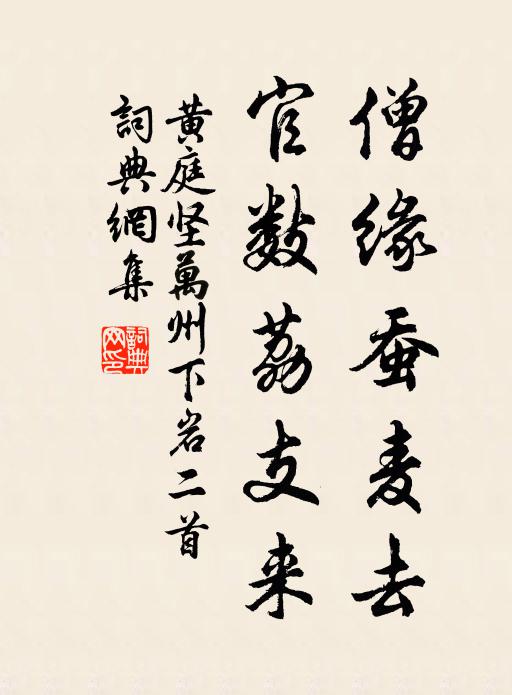 僧缘蚕麦去
官数荔支来
黄庭坚萬州下岩二首
詞典網集
詞典网印